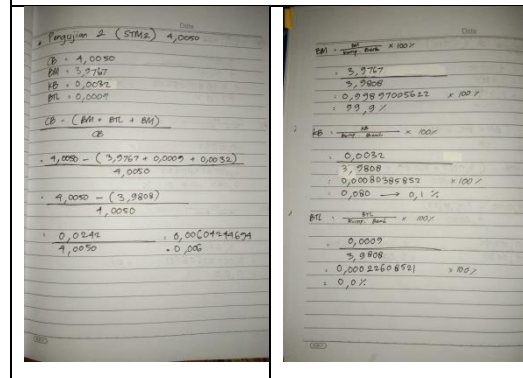 Date
• Pengujian 2 (STM2) 4,0050
CB : 4,0050
BM : 3,9767
KB : 0,0032
BTL : 0,0009
CB - (BM + BTL + BM)
CB
= 4,0050 - (3,9767 + 0,0009 + 0,0032)
4,0050
= 4,0050 - (3,9808)
4,0050
= 0,0242 = 0,00604244694
4,0050 = 0,006
Date
BM = BM × 100%
Komp. Berat
= 3,9767
3,9808
= 0,99897005622 × 100%
= 99,9%
KB = KB × 100%
Komp. Berat
= 0,0032
3,9808
= 0,00080385852 × 100%
= 0,080 → 0,1 %
BTL = BTL × 100%
Komp. Berat
= 0,0009
3,9808
= 0,00022608521 × 100%
= 0,0%